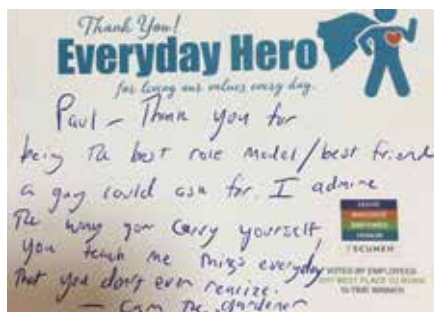 Thank You!
Everyday Hero
for living our values every day.
Paul – Thank you for
being the best role model/best friend
a guy could ask for. I admire
the way you carry yourself,
you teach me things everyday
that you don't even realize.
– Cam the gardener
EMPOWER
HONOR
ECUMEN
VOTED BY EMPLOYEES
BEST PLACE TO WORK
10-TIME WINNER